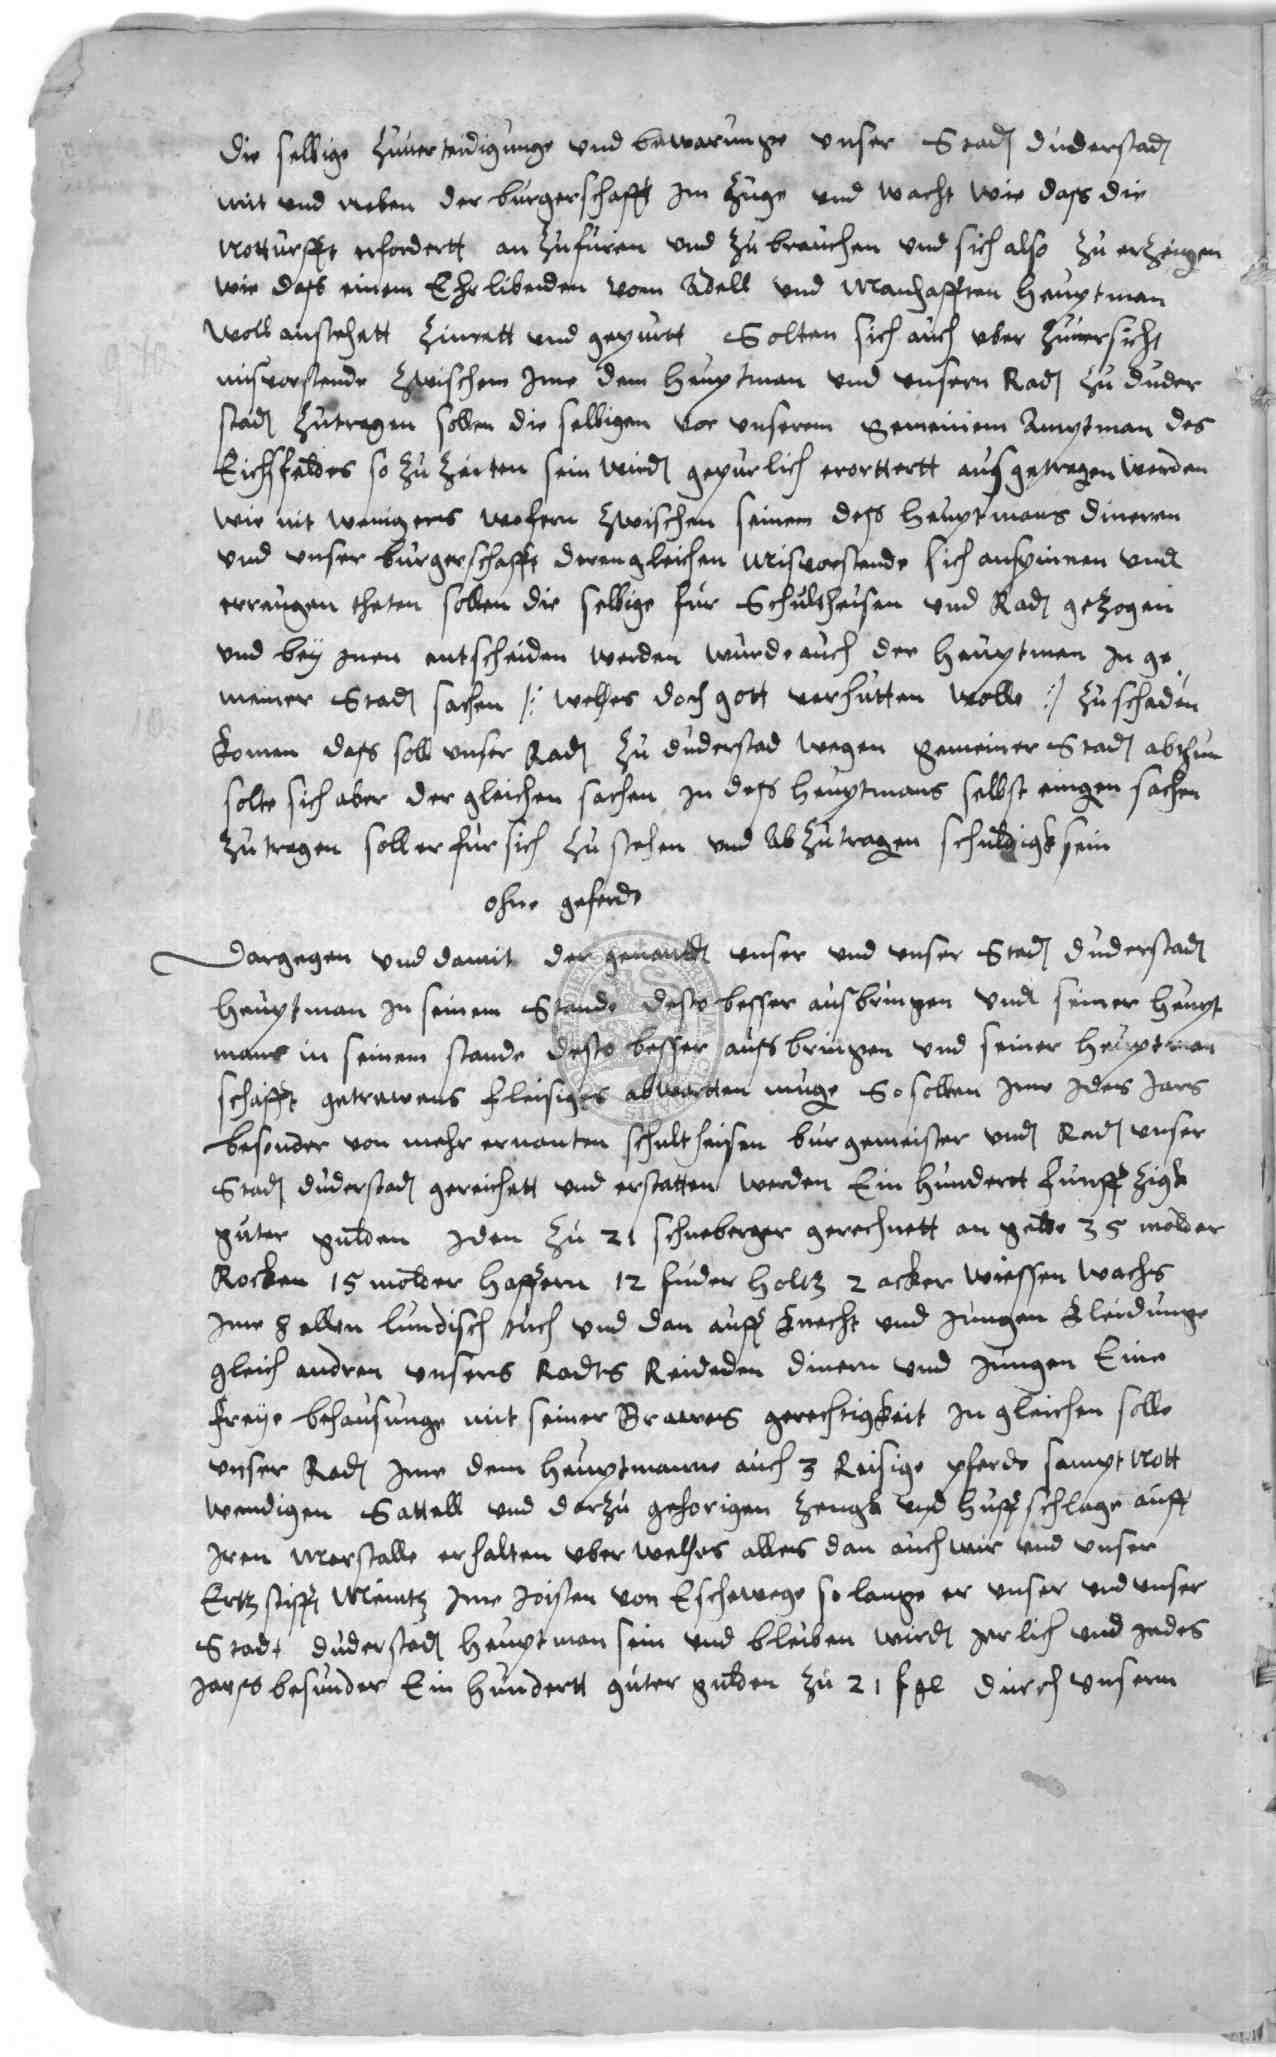 die selbige zuuerteidigunge vnd bewarunge vnser Stadt duderstadt
mit vnd neben der burgerschafft Im zuge vnd wacht wie dass die
Notturfft erfordertt an zufuren vnd zu brauchen vnd sich also zu erzeigen
wie dass einem Ehrlibenden vom Adell vnd Manhafften Heuptman
woll anstehett Zimett vnd gepurtt Solten sich auch vber zuuersicht
misvorstende zwischen Ime dem heuptman vnd vnsern Radt zu duder
stadt zutragen sollen die selbigen vor vnserem gemeinem Amptman des
Eichsfeldes so zu zeiten sein wirdt gepurlich erorttertt ausgetragen werden
wie nit wenigers wofern zwischen seinem dess heuptmans dineren
vnd vnser burgerschafft derengleichen Misvorstende sich anspinnen vnd
erreugen theten sollen die selbige fur Schultheisen vnd Radt gezogen
vnd bey inen entscheiden werden wurde auch der heuptman In ge
meiner Stadt sachen /: welhes doch gott verhutten wolle :/ zu schaden
komen dass soll vnser Radt zu duderstad wegen gemeiner Stadt abthun
solte sich aber der gleichen sachen in dess heuptmans selbst eingen sachen
zu tragen soll er fur sich zu stehen vnd Abzutragen schuldigk sein
ohne geferde
Dargegen vnd damit der genantt vnser vnd vnser Stadt duderstadt
heuptman in seinem Stande desto besser ausbringen vnd seiner heupt
mans in seinem stande desto besser auss bringen vnd seiner heuptman
schafft getrewens fleisiges abwartten muge So sollen Ime Ides Jars
besonder von mehr ernanten schultheisen burgemeister vndt Radt vnser
Stadt duderstadt gereichett vnd erstatten werden Ein hundertt funffzigk
guter gulden Iden zu 21 schneberger gerechnett an gelde 35 molder
Rocken 15 molder haffern 12 fuder holtz 2 acker wiessen wachs
Ime 8 ellen lundisch tuch vnd dan auff knecht vnd Jungen kleidunge
gleich andren vnsers Radts Reideden dinern vnd Jungen Eine
freye behausunge mit seiner Brawes gerechtigkeit In gleichen solle
vnser Radt Ime dem heuptmanne auch 3 Reisige pferde sampt Nott
wendigen Sattell vnd darzu gehorigen zeugk vnd huffschlage auff
Iren Marstalle erhalten vber welhes alles dan auch wir vnd vnser
Ertzstifft Meintz Ime Joisten von Eschewege so lange er vnser vnd vnser
Stadt duderstadt heuptman sein vnd bleiben wirdt Jerlich vnd Jedes
Jarss besunder Ein hundertt guter gulden zu 21 sgl durch vnsern